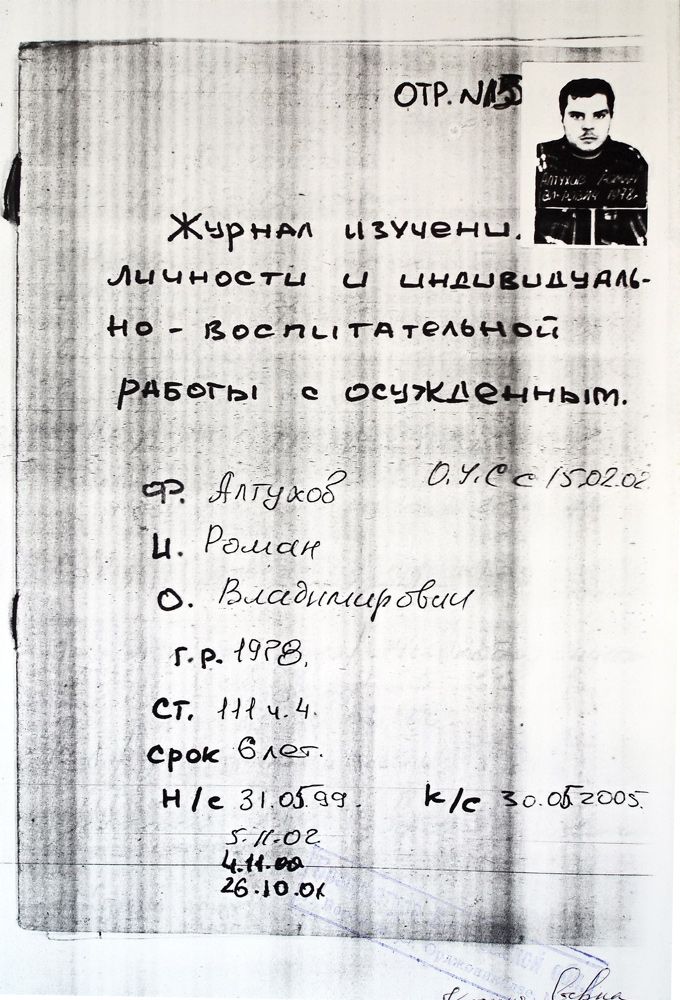 ОТР. N15
АЛТУХОВ РОМАН
1978г
Журнал изучени
личности и индивидуаль-
но - воспитательной
работы с осужденным.
О.У.С с 15.02.02
Ф. Алтухов
И. Роман
О. Владимирович
г.р. 1978.
ст. 111 ч. 4.
срок 6 лет.
н/с 31.05.99. к/с 30.05.2005.
5.11.02
4.11.00
26.10.01